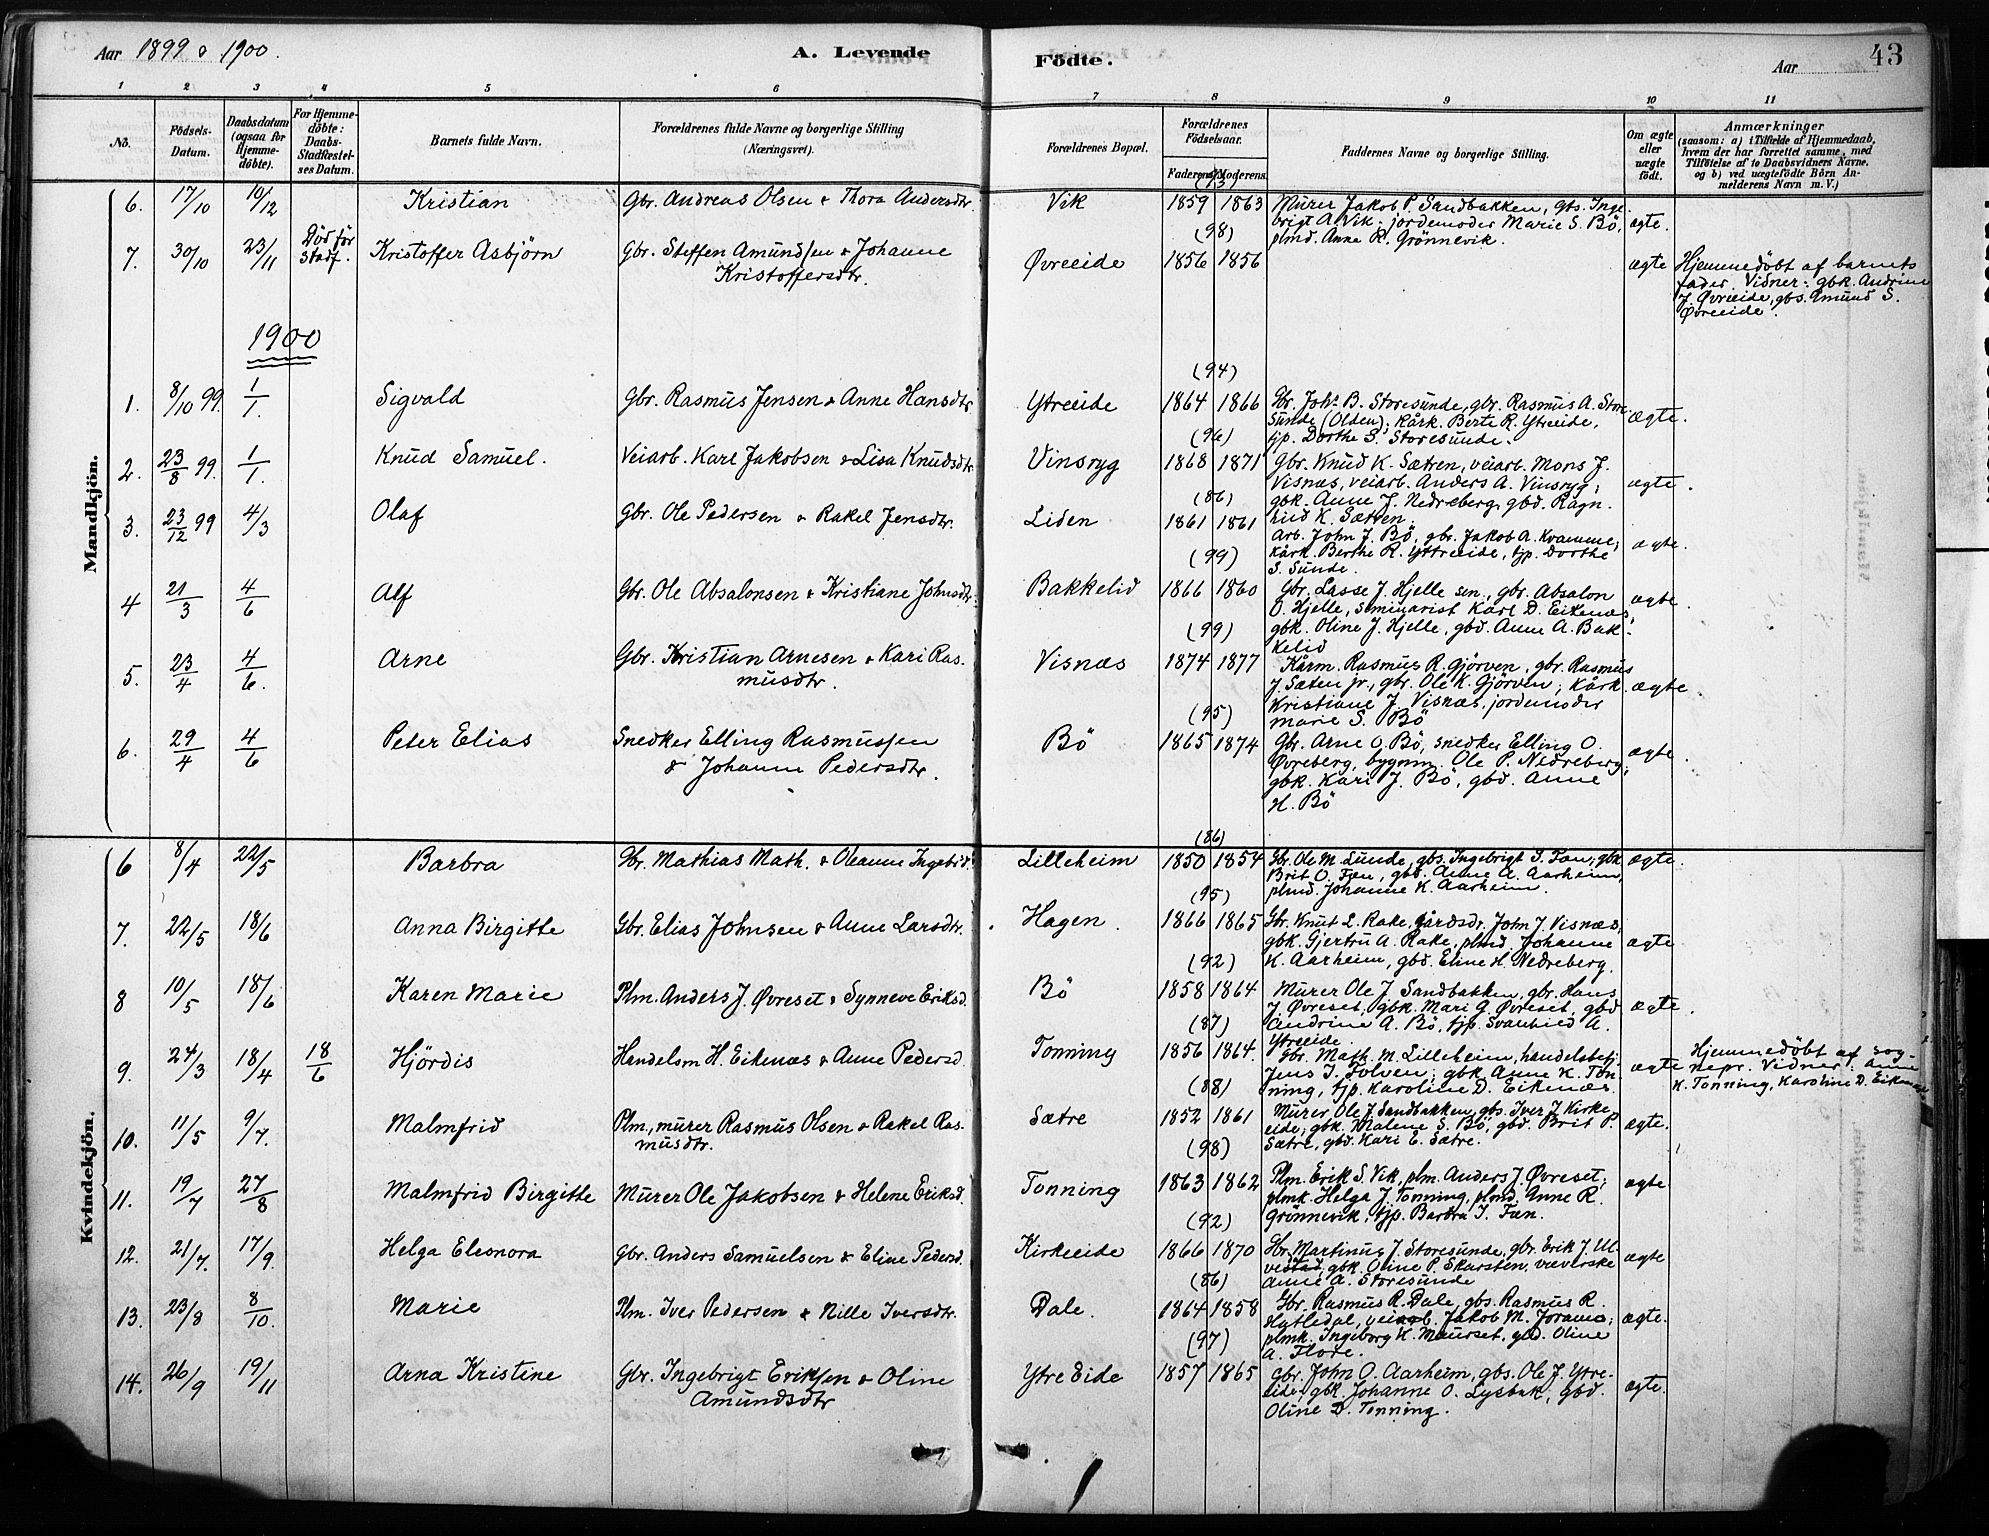 Aar 1899 & 1900.
A. Levende
Födte.
Aar
43
1 2 3 4 5 6 7 8 9 10 11
No.
Födsels-Datum.
Daabsdatum (ogsaa for Hjemme-döbte).
For Hjemme-döbte: Daabs-Stadfæstel-ses Datum.
Barnets fulde Navn.
Forældrenes fulde Navne og borgerlige Stilling (Næringsvei).
Forældrenes Bopæl.
Forældrenes Födselsaar.
Faderens. Moderens.
Faddernes Navne og borgerlige Stilling.
Om ægte eller uægte födt.
Anmærkninger
(saasom: a) i Tilfælde af Hjemmedaab, hvem der har forrettet samme, med Tilföielse af to Daabsvidners Navne, og b) ved uægtefödte Börn An-melderens Navn m. V.)
Mandkjön.
6. 17/10 10/12 Kristian Gbr. Andreas Olsen & Thora Andersdtr. Vik 1859 1863 Murer Jakob P. Sandbakken, gbs. Inge-
brigt A. Vik; jordemoder Marie S. Bö, ægte.
(98) plmd. Anna R. Grönnevik.
7. 30/10 23/11 Död för stadf. Kristoffer Asbjörn Gbr. Steffen Amundsen & Johanne
Kristoffersdtr. Øvreeide 1856 1856 ægte Hjemmedöbt af barnets
fader. Vidner: gbk. Andrine
J. Øvreeide, gbs. Amund S.
Øvreeide.
1900
(94)
1. 8/10 99. 1/1. Sigvald Gbr. Rasmus Jensen & Anne Hansdtr. Ytreeide 1864 1866 Gbr. Johs. B. Storesunde, gbr. Rasmus A. Store-
sunde (Olden); kårk. Berte R. Ytreeide, ægte.
(96) tjp. Dorthe S. Storesunde.
2. 23/8 99. 1/1. Knud Samuel. Veiarb. Karl Jakobsen & Lisa Knudsdtr. Vinsryg 1868 1871 Gbr. Knud K. Sætren, veiarb. Mons J.
Visnæs, veiarb. Anders A. Vinsryg; ægte.
(86) gbk. Anne J. Nedreberg, gbd. Ragn-
hild K. Sætren.
3. 23/12 99 4/3 Olaf Gbr. Ole Pedersen & Rakel Jensdtr. Liden 1861 1861
Arb. John J. Bö, gbr. Jakob A. Kvamme;
(99) kårk. Berthe R. Yttreeide, tjp. Dorthe ægte.
S. Sunde.
4 21/3 4/6 Alf Gbr. Ole Absalonsen & Kristiane Johnsdtr. Bakkelid 1866 1860 Gbr. Lasse J. Hjelle sen., gbr. Absalon
O. Hjelle, seminarist Karl D. Eikenæs, ægte.
(99) gbk. Oline J. Hjelle, gbd. Anne A. Bak-
kelid
5. 23/4 4/6. Arne Gbr. Kristian Arnesen & Kari Ras-
musdtr. Visnæs 1874 1877 Kårm. Rasmus R. Gjörven, gbr. Rasmus
J. Sæten jr., gbr. Ole K. Gjörven; kårk. ægte
Kristiane J. Visnæs, jordemoder
(95) Marie S. Bö
6. 29/4 4/6 Peter Elias Snedker Elling Rasmussen
& Johanne Pedersdtr. Bö 1865 1874 Gbr. Arne O. Bö, snedker Elling O.
Øvreberg, bygmm. Ole P. Nedreberg; ægte.
gbk. Kari J. Bö, gbd. Anne
H. Bö
Kvindekjön.
(86)
6 8/4 22/5 Barbra Gbr. Mathias Math. & Oleanne Ingebrd. Lilleheim 1850 1854 Gbr. Ole M. Sunde, gbs. Ingebrigt S. Fæn; gbk. ægte.
Brit O. Fæn, gbd. Anne A. Aarheim,
(95) plmd. Johanne K. Aarheim.
7. 22/5 18/6 Anna Birgitte Gbr. Elias Johnsen & Anne Larsdtr. Hagen. 1866 1865 Gbr. Knut L. Rake, gårdsdr. John J. Visnæs,
gbk. Gjertru A. Rake, plmd. Johanne ægte
(92) K. Aarheim, gbd. Eline H. Nedreberg.
8 10/5 18/6 Karen Marie Plm. Anders J. Øvreset & Synneve Eriksd. Bö 1858 1864 Murer Ole J. Sandbakken, gbr. Hans
J. Øvreset, gbk. Mari G. Øvreset, gbd. ægte.
(87) Andrine A. Bö, tjp. Svanhild A.
Ytreeide.
9. 24/3 18/4 18/6 Hjördis Handelsm. H. Eikenæs & Anne Pedersd. Tonning 1856 1864. Gbr. Math. M. Lilleheim, handelsbetj.
Jens I. Folven; gbk. Anne K. Ton- ægte
(88) ning, tjp. Karoline D. Eikenæs.
Hjemmedöbt af sog-
nepr. Vidner: Anne
K. Tonning, Karoline D. Eikenæs
10. 11/5 9/7. Malmfrid Plm., murer Rasmus Olsen & Rakel Ras-
musdtr. Sætre 1852 1861 Murer Ole J. Sandbakken, gbs. Iver J. Kirke-
eide; gbk. Malene S. Bö, gbd. Brit P. ægte.
(98) Sætre, gbd. Kari E. Sætre.
11. 19/7 27/8 Malmfrid Birgitte Murer Ole Jakobsen & Helene Eriksd. Tonning 1863 1862 Plm. Erik S. Vik, plm. Anders J. Øvreset;
plmk. Helga J. Tonning, plmd. Anne R. ægte
(92) Grönnevik, tjp. Barbra I. Fæn.
12. 21/7. 17/9. Helga Eleonora Gbr. Anders Samuelsen & Eline Pedersd. Kirkeeide 1866 1870 Gbr. Martinus J. Storesunde, gbr. Erik J. Ul-
vestad, gbk. Oline P. Skarsten, væverske ægte
(86) Anne A. Storesunde
13. 23/8 8/10. Marie Plm. Iver Pedersen & Nille Iversdtr. Dale. 1864 1858 Gbr. Rasmus R. Dale, gbs. Rasmus R.
Hatledal, veiarb. Jakob M. Joranes; ægte.
(97) plmk. Ingeborg K. Maurset, gbd. Oline
A. Flore.
14. 26/9 19/11 Arna Kristine Gbr. Ingebrigt Eriksen & Oline
Amundsdtr Ytre Eide 1857 1865 Gbr. John O. Aarheim, gbs. Ole J. Ytre-
eide; gbk. Johanne O. Lysbak, gbd. ægte.
Oline D. Tonning.